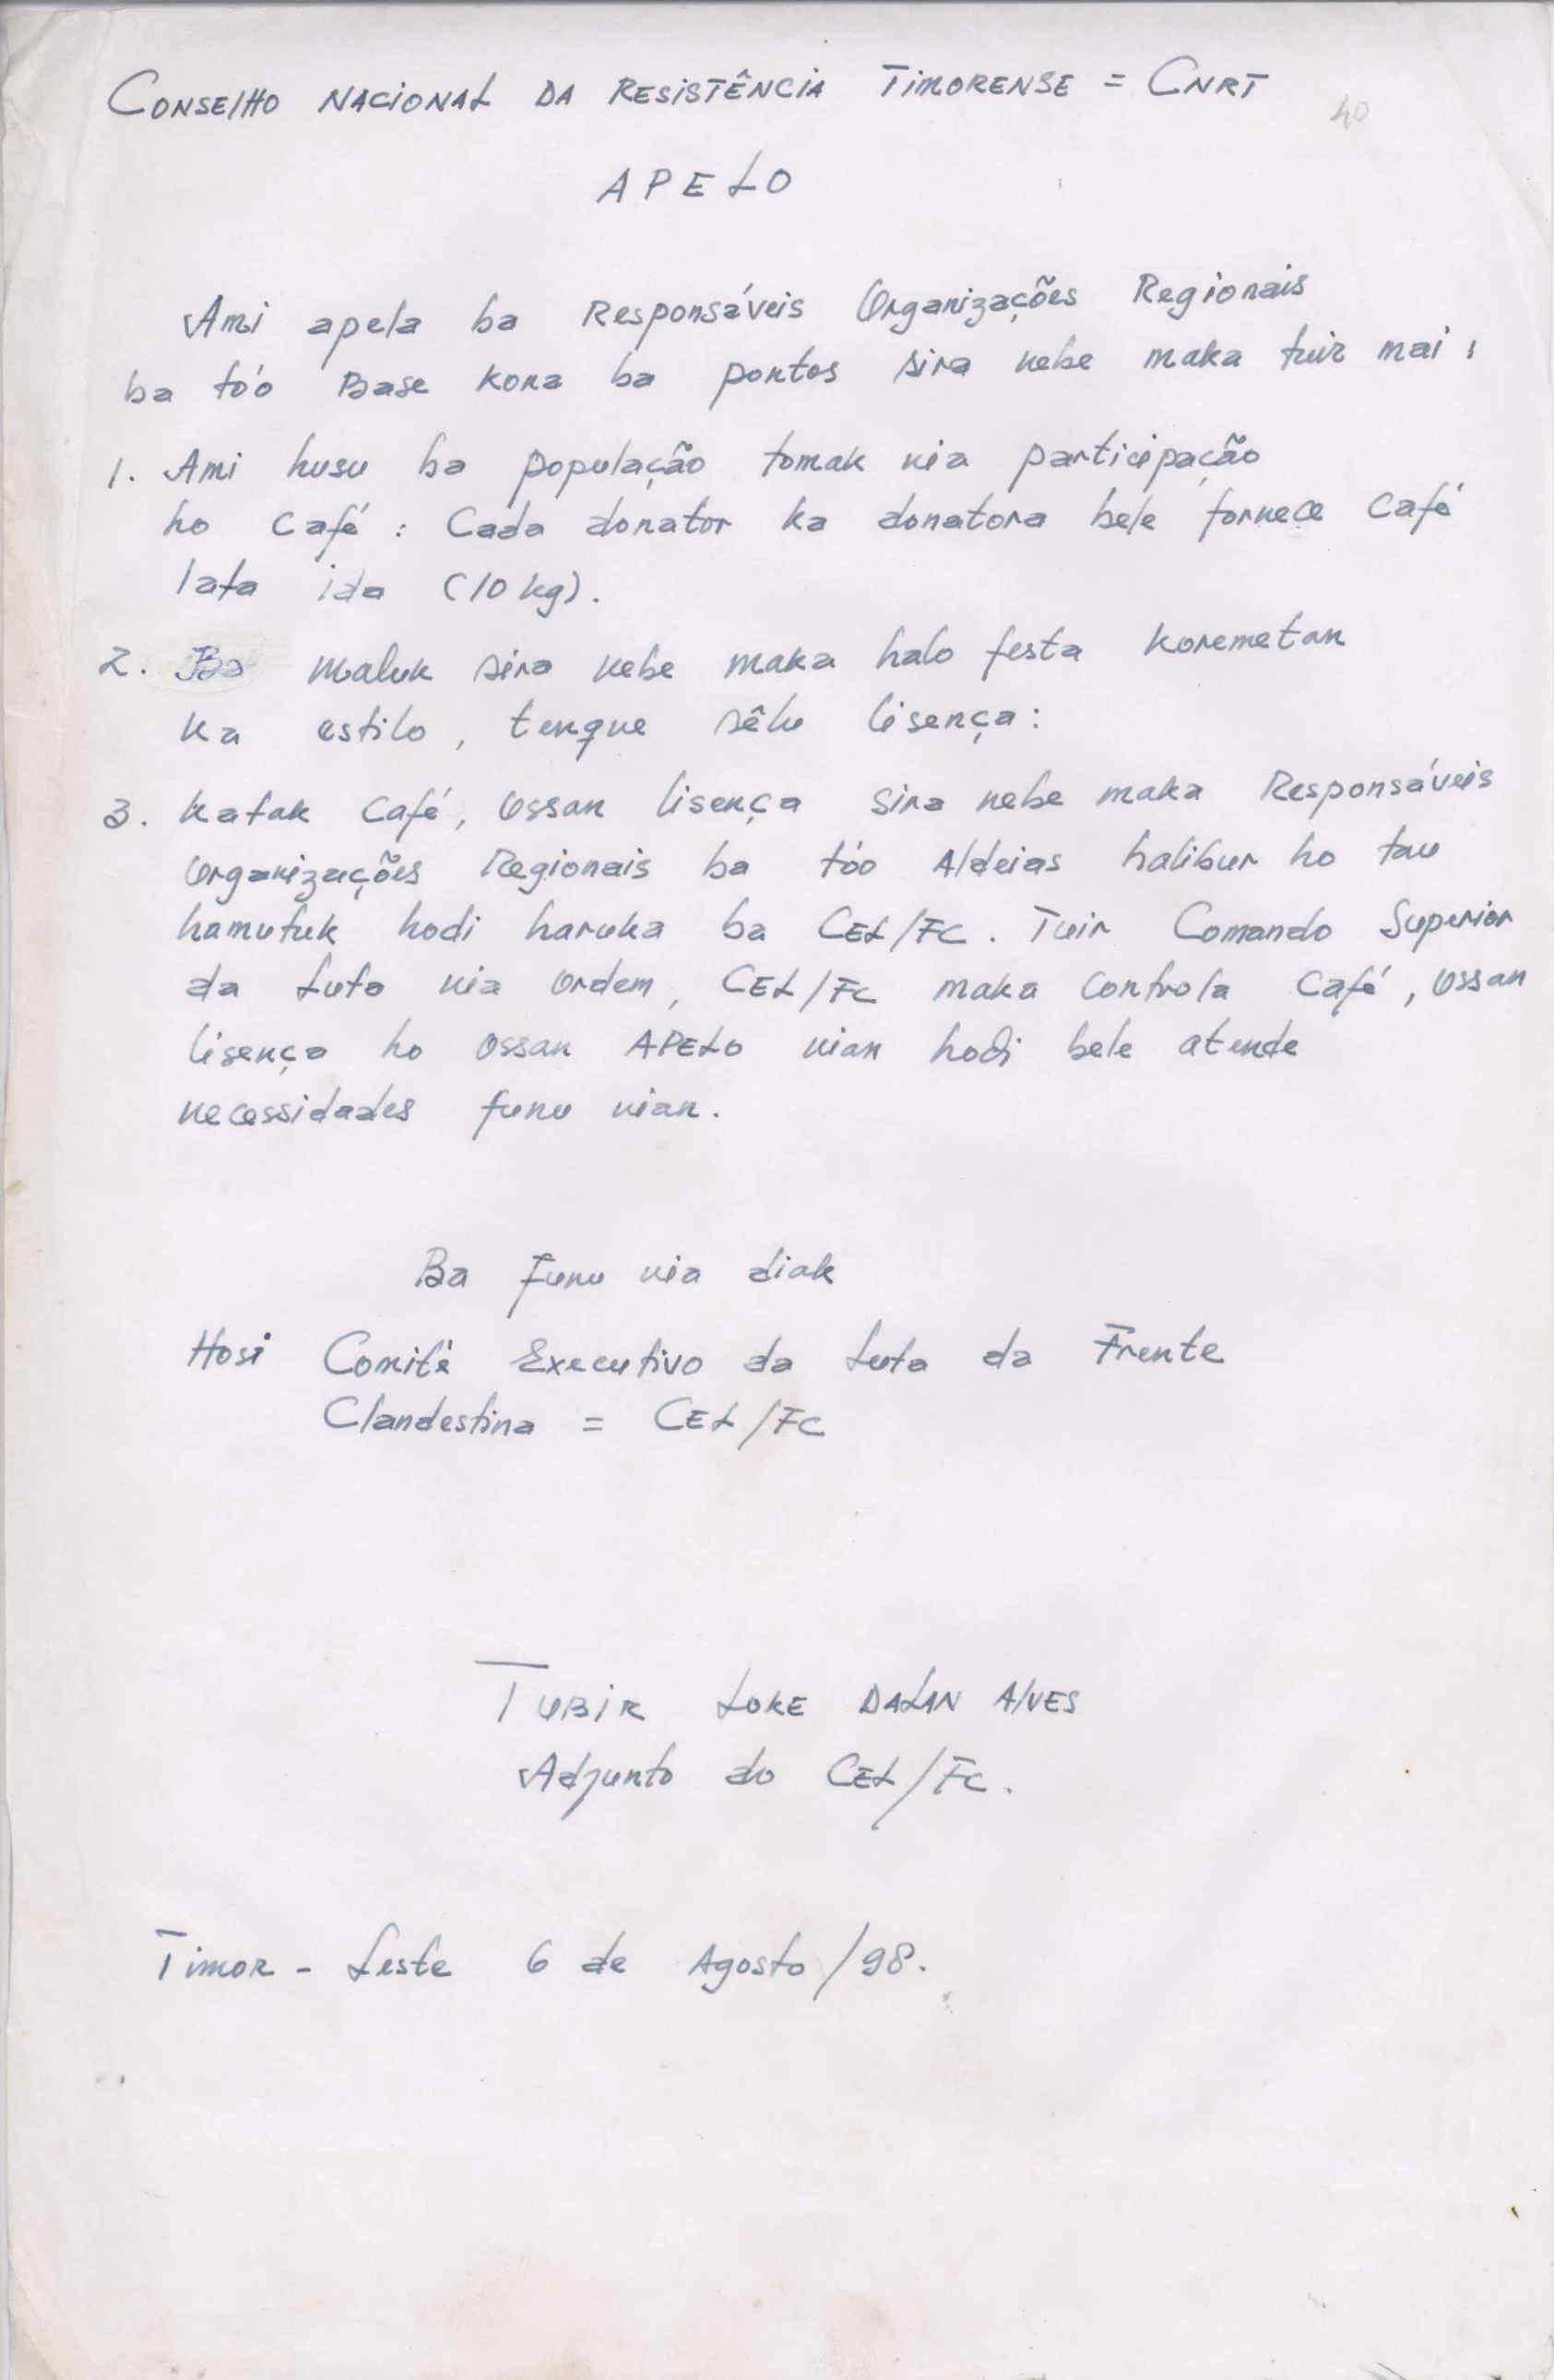 CONSELHO NACIONAL DA RESISTÊNCIA TIMORENSE = CNRT
40
APELO
Ami apela ba Responsáveis Organizações Regionais
ba tó'o Base kona ba pontos sira nebe maka tuir mai :
1. Ami husu ba população tomak nia participação
ho Café : Cada donator ka donatora bele fornece Café
lata ida (10 kg).
2. Ba maluk sira nebe maka halo festa koremetan
ka estilo, tenque sêlu lisença :
3. Katak Café, Ossan lisença sira nebe maka Responsáveis
Organizações Regionais ba tóo Aldeias halibur ho tau
hamutuk hodi haruka ba CEL/FC. Tuir Comando Superior
da Luta nia ordem, CEL/FC maka controla Café, Ossan
lisença ho ossan APELO nian hodi bele atende
necessidades funu nian.
Ba Funu nia diak
Hosi Comité Executivo da Luta da Frente
Clandestina = CEL/FC
TUBIR LOKE DALAN ALVES
Adjunto do CEL/FC.
Timor - Leste 6 de Agosto/98.